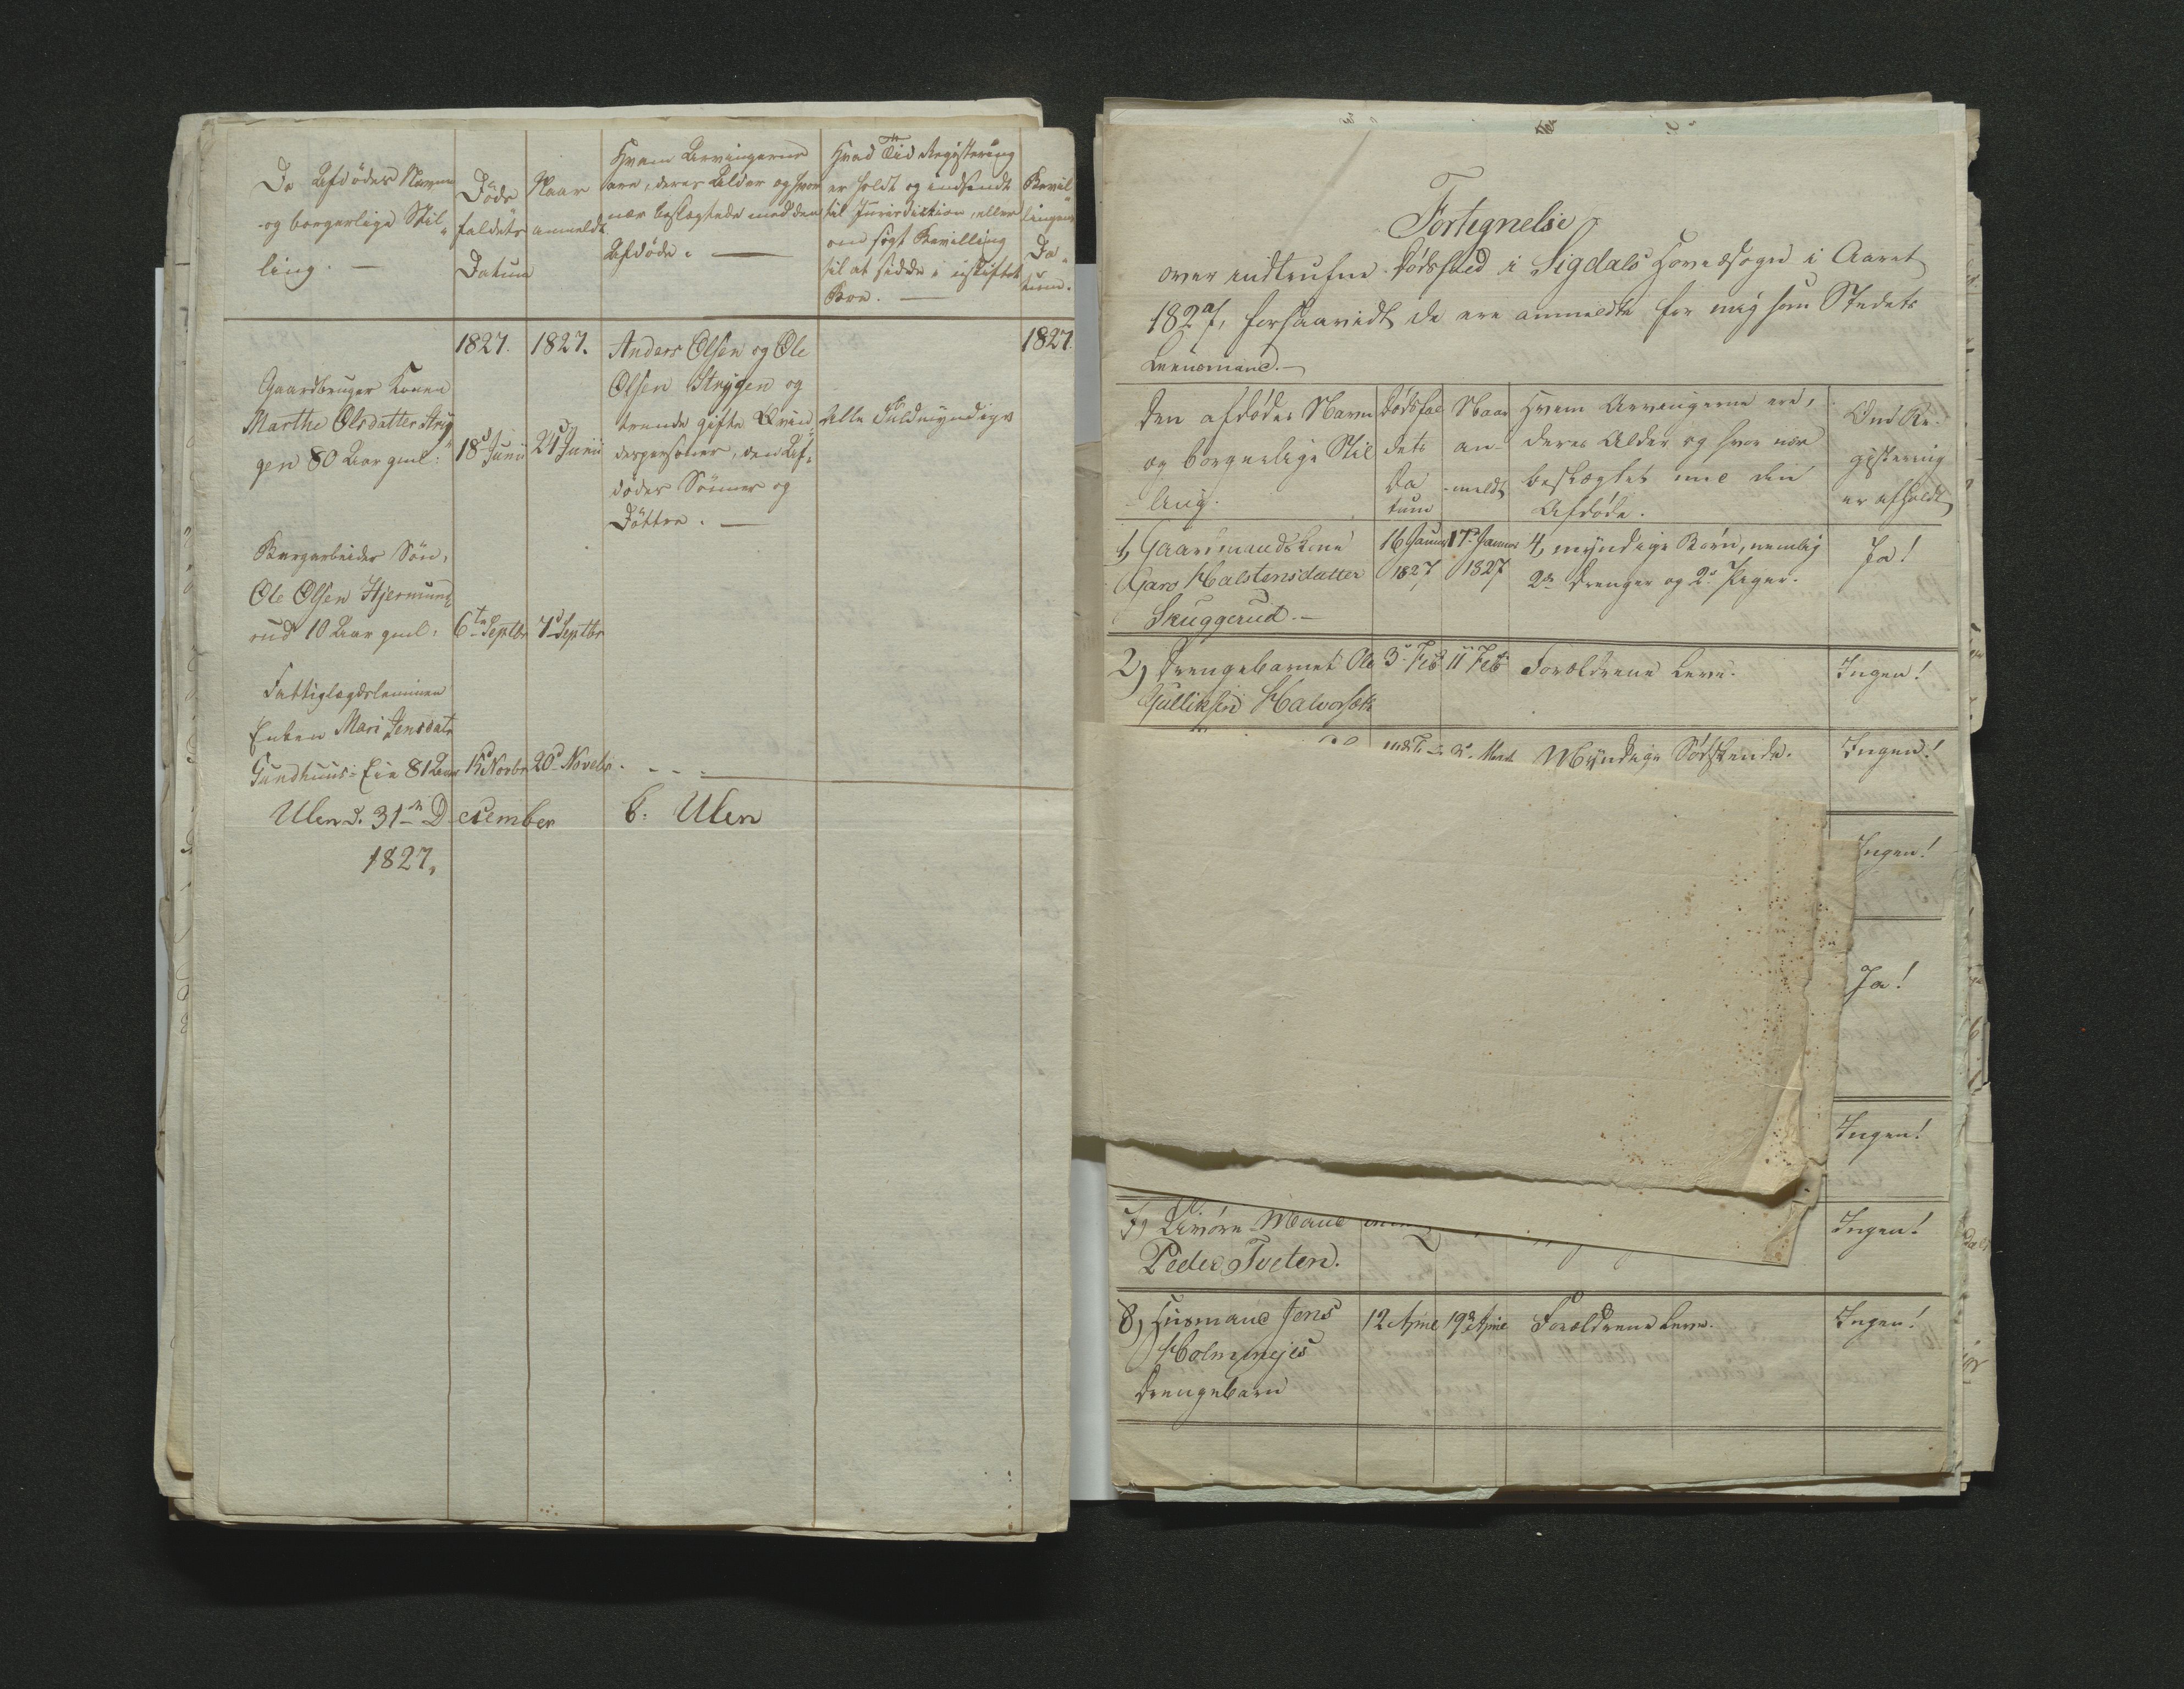 De Afdødes Navne
og borgerlige Stil-
ling. —
Døds
faldets
Datum
Naar
anmeldt
Hvem Arvingerne
ere, deres Alder og hvor
nær beslægtede med den
Afdøde. —
Hvad Tid Registering
er holdt og indsendt
til Jurisdiction, eller
om søgt Bevilling
til at sidde i uskiftet
Boe. —
Bevil-
lingens
Da-
tum.
1827.
1827.
1827.
Gaardbruger Konen
Marthe Olsdatter Stry-
gen 80 Aar gml:
18d Junii
24d Junii
Anders Olsen og Ole
Olsen Strygen og
trende gifte Qvin-
despersoner, den Af-
dødes Sønner og
Døttre. —
Alle Fuldmyndige
Bergarbeider Søn,
Ole Olsen Hjermund-
rud 10 Aar gml:
6te Septbr
7d Septbr
Fattiglægdslemmen
Enken Mari Jensdatr
Sundhuus-Eie 81 Aar
15d Novbr
20d Novebr.
Ulen d. 31te December
1827.
Ulen
Fortegnelse
over indtrufne Dødsfald i Sigdals Hovedsogn i Aaret
1827, forsaavidt de ere anmeldte for mig som Stedets
Lensmand. —
Den afdødes Navn
og borgerlige Stil
ling.
Dødsfal
dets
Da
tum
Naar
an-
meldt
Hvem Arvingerne ere,
deres Alder og hvor nær
beslægtet med den
Afdøde.
Om Re-
gistering
er afholdt
1, Gaardmandskone
Kari Halstensdatter
Skuggerud. —
16 Januar
1827
17de Januar
1827
4, myndige Børn, nemlig
2de Drenge og 2de Piger.
Ja!
2, Drengebarnet Ole
Gulliksen Halvorsæt
3d Feb
11 Feb
Forældrene leve.
Ingen!
Myndige Sødskende.
Ingen!
Ingen!
Ja!
Ingen!
7,
Peder Tveten.
Ingen!
8, Huusmand Jens
Holmmejes
Drengebarn
12 April
19de April
Forældrene leve.
Ingen!